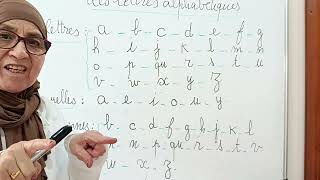 les lettres alphabétiques
lettres : a _ b _ c _ d _ e _ f _ g
h _ i _ j _ k _ l _ m _ n
o _ p _ qu _ r _ s _ t _ u
v _ w _ x _ y _ z
elles : a _ e _ i _ o _ u _ y
nnes : b _ c _ d _ f _ g _ h _ j _ k _ l
n _ p _ qu _ r _ s _ t _ v
w _ x _ z